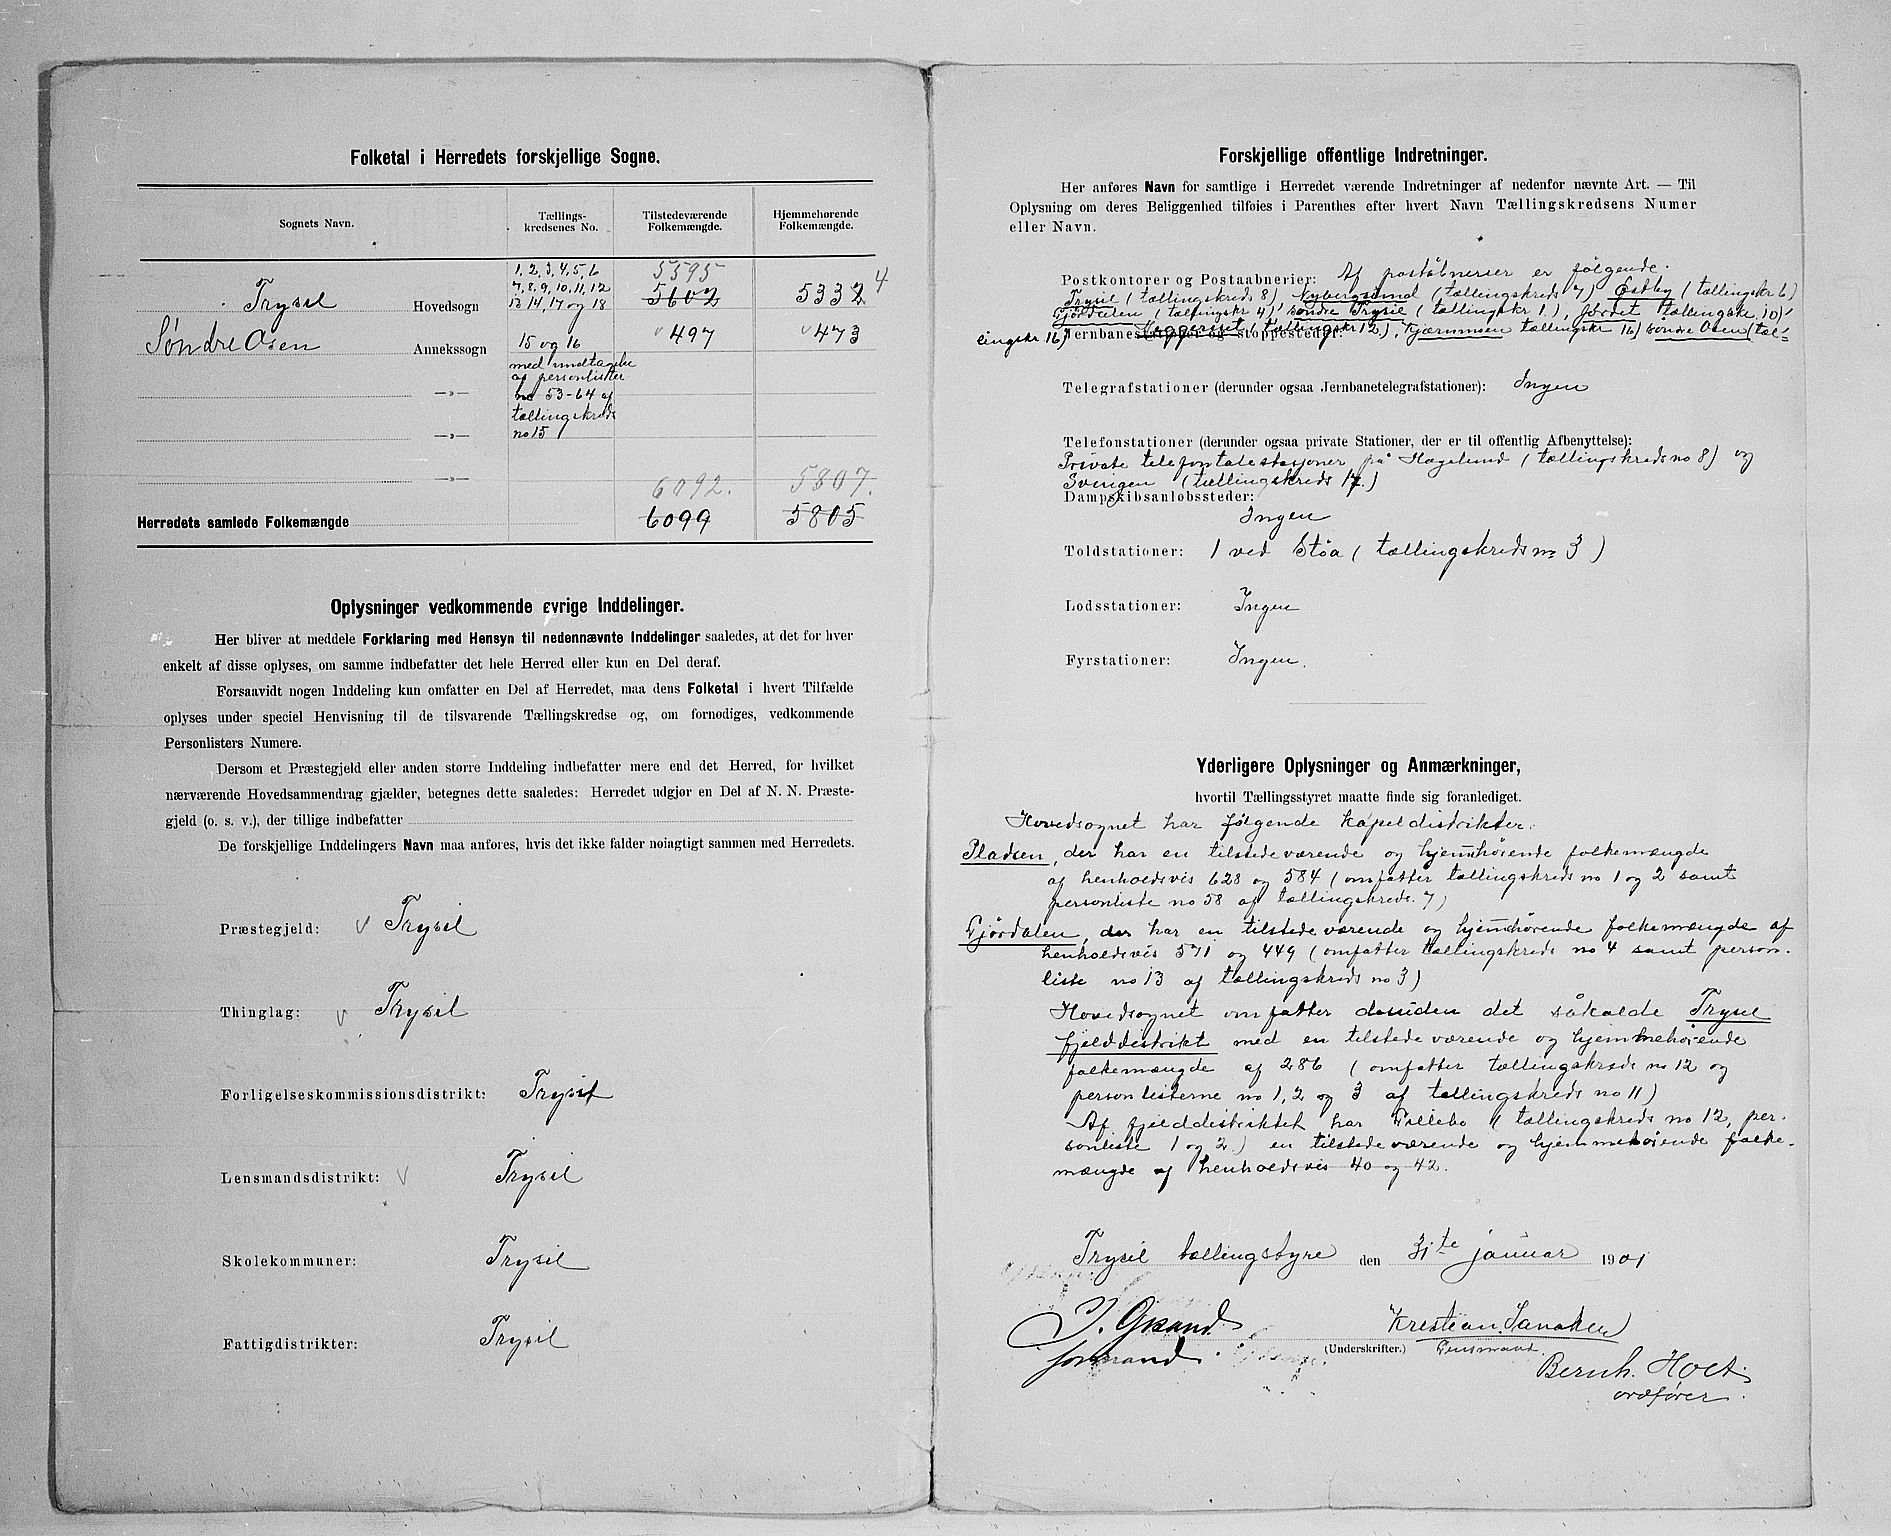 Folketal i Herredets forskjellige Sogne.
Sognets Navn.
Tællings-
kredsenes No.
Tilstedeværende
Folkemængde.
Hjemmehørende
Folkemængde.
Trysil
Hovedsogn
1, 2, 3, 4, 5, 6
7, 8, 9, 10, 11, 12
13 14, 17 og 18
5595
5602
5332 4
Søndre Osen
Annekssogn
15 og 16
med undtagelse
af personlister
no 53-64 af
tællingskreds
no 15
497
473
—»—
—»—
—»—
6092.
5807.
Herredets samlede Folkemængde
6099
5805
Oplysninger vedkommende øvrige Inddelinger.
Her bliver at meddele Forklaring med Hensyn til nedennævnte Inddelinger saaledes, at det for hver
enkelt af disse oplyses, om samme indbefatter det hele Herred eller kun en Del deraf.
Forsaavidt nogen Inddeling kun omfatter en Del af Herredet, maa dens Folketal i hvert Tilfælde
oplyses under speciel Henvisning til de tilsvarende Tællingskredse og, om fornødiges, vedkommende
Personlisters Numere.
Dersom et Præstegjeld eller anden større Inddeling indbefatter mere end det Herred, for hvilket
nærværende Hovedsammendrag gjælder, betegnes dette saaledes: Herredet udgjør en Del af N. N. Præste-
gjeld (o. s. v.), der tillige indbefatter
De forskjellige Inddelingers Navn maa anføres, hvis det ikke falder nøiagtigt sammen med Herredets.
Præstegjeld: v Trysil
Thinglag: v Trysil
Forligelseskommissionsdistrikt: Trysil
Lensmandsdistrikt: v Trysil
Skolekommuner: Trysil
Fattigdistrikter: Trysil
Forskjellige offentlige Indretninger.
Her anføres Navn for samtlige i Herredet værende Indretninger af nedenfor nævnte Art. — Til
Oplysning om deres Beliggenhed tilføies i Parenthes efter hvert Navn Tællingskredsens Numer
eller Navn.
Postkontorer og Postaabnerier: Af poståbnerier er følgende:
Trysil (tællingskreds 8), Nybergsund (tællingskreds 7) Østby (tællingskr 6)
Fjördalen (tællingskr 4), søndre Trysil (tællingskr 1), Jordet tællingskr. 10),
(tællingskr 12), Kjærnmoen tællingskr 16) søndre Osen (tæl-
lingskr 16)
Jernbanestationer og Stoppesteder:
Telegrafstationer (derunder ogsaa Jernbanetelegrafstationer): Ingen
Telefonstationer (derunder ogsaa private Stationer, der er til offentlig Afbenyttelse):
Private telefontalestasjoner på Hagelund (tællingskreds no 8) og
Svingen (tællingskreds 17.)
Dampskibsanløbssteder:
Ingen
Toldstationer: 1 ved Støa (tællingskreds no 3)
Lodsstationer: Ingen
Fyrstationer: Ingen.
Yderligere Oplysninger og Anmærkninger,
hvortil Tællingsstyret maatte finde sig foranlediget.
Hovedsognet har følgende kapeldistrikter:
Pladsen, der har en tilstedeværende og hjemmhørende folkemængde
af henholdsvis 628 og 584 (omfatter tællingskreds no 1 og 2 samt
personliste no 58 af tællingskreds 7)
Fjördalen, der har en tilstedeværende og hjemmhørende folkemængde af
henholdsvis 571 og 449 (omfatter tællingskreds no 4 samt person-
liste no 13 af tællingskreds no 3)
Hovedsognet omfatter desuden det såkalde Trysil
fjelddistrikt med en tilstedeværende og hjemmehørende
folkemængde af 286 (omfatter tællingskreds no 12 og
personlisterne no 1, 2 og 3 af tællingskreds no 11)
Af fjelddistriktet har Lillebo (tællingskreds no 12, per-
sonliste 1 og 2) en tilstedeværende og hjemmehørende folke-
mængde af henholdsvis 40 og 42.
Trysil tællingsstyre den 31te januar 1901
J. Grand
formand.
Kristian Sanaker
Lensmand.
(Underskrifter.)
Bernh. Holt
ordfører.